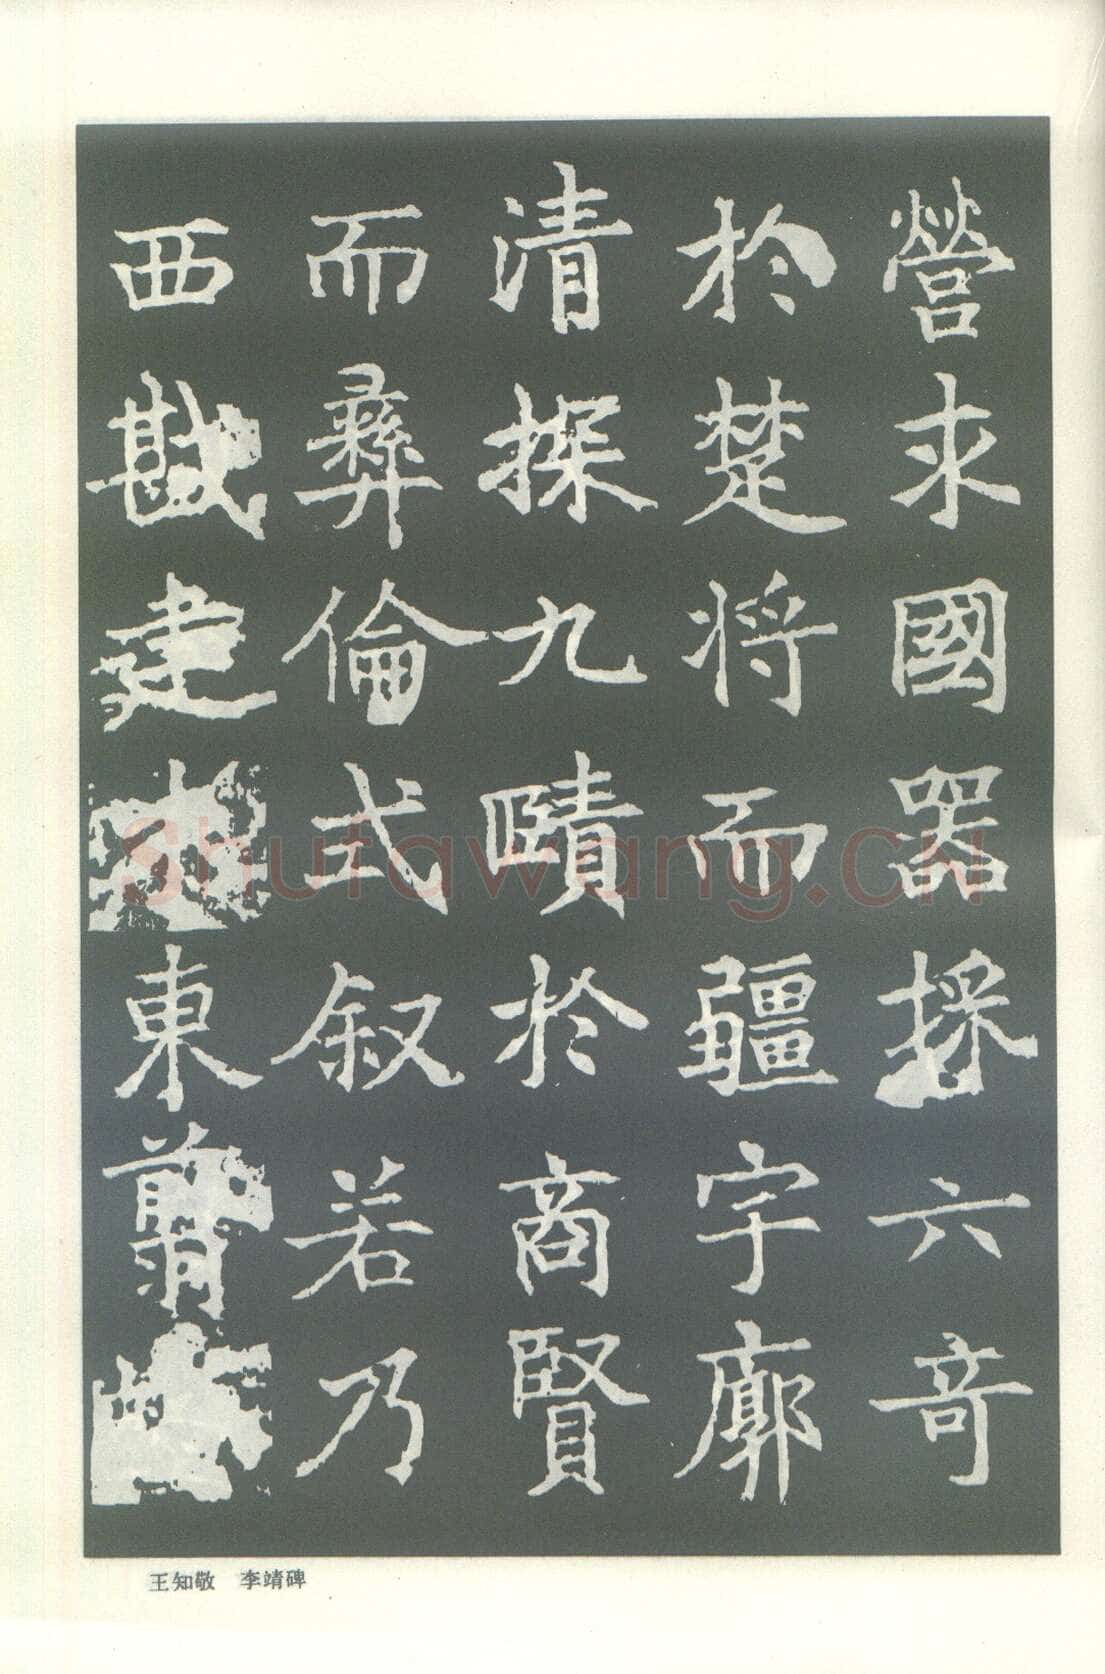 營求國器採六奇
於楚将而疆宇廓
清探九賾於商賢
而彝倫式叙若乃
西戡建東翦
王知敬 李靖碑
shufawang.cn